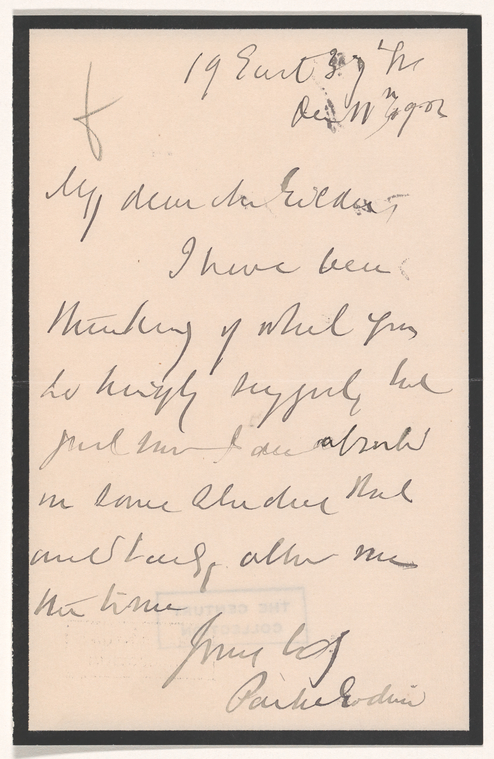 19 East 37th
Dec 11th 1902
My dear Mr Gilder,
I have been
thinking of what you
so kindly suggest, but
just now I am absorbed
in some studies that
will hardly allow me
the time
Yours truly
Parke Godwin
THE CENTURY
COLLECTION